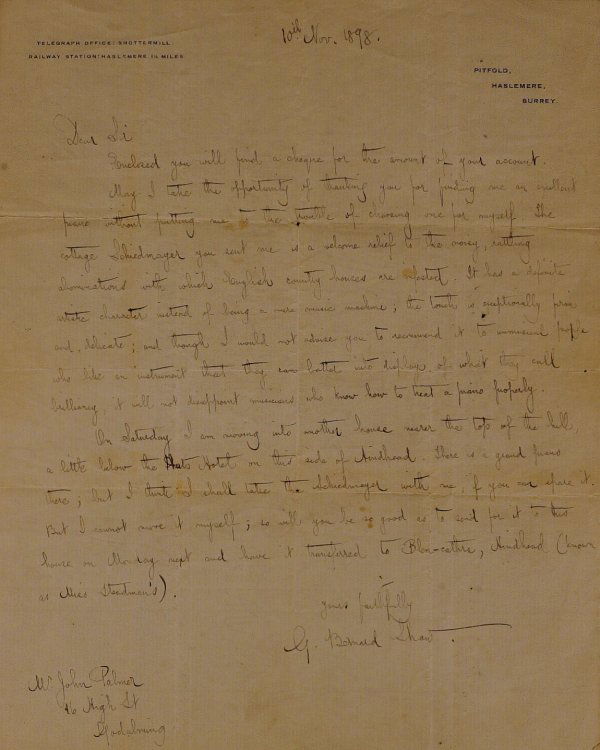 10th Nov. 1898.
TELEGRAPH OFFICE: SHOTTERMILL.
RAILWAY STATION: HASLEMERE 1¼ MILES.
PITFOLD,
HASLEMERE,
SURREY.
Dear Sir
Enclosed you will find a cheque for the amount of your account.
May I take the opportunity of thanking you for finding me an excellent
piano without putting me to the trouble of choosing one for myself. The
cottage Schiedmayer you sent me is a welcome relief to the noisy, rattling
abominations with which English country houses are infested. It has a definite
artistic character instead of being a mere music machine; the touch is exceptionally prim
and delicate; and though I would not advise you to recommend it to unmusical people
who like an instrument that they can batter into displays of what they call
brilliancy, it will not disappoint musicians who know how to treat a piano properly.
On Saturday I am moving into another house nearer the top of the hill,
a little below the Huts Hotel on this side of Hindhead. There is a grand piano
there; but I think I shall take the Schiedmayer with me, if you can spare it.
But I cannot move it myself; so will you be so good as to send for it to this
house on Monday next and have it transferred to Blen-cathra, Hindhead (known
as Miss Steadman's).
yours faithfully
G. Bernard Shaw.
Mr John Palmer
High St
Godalming